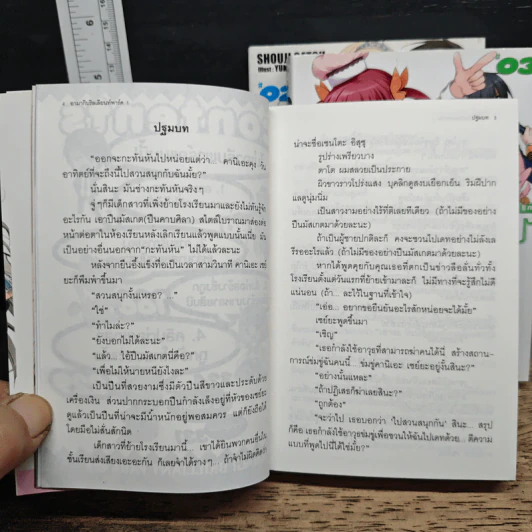 SHOUJI GATOU
4 อามากิบริลเลียนท์พาร์ค 1
ปฐมบท
"ออกจะกะทันหันไปหน่อยแต่ว่า คานิเอะคุง วัน
อาทิตย์ที่จะถึงนี้ไปสวนสนุกกับฉันมั้ย?"
นั่นสินะ มันช่างกะทันหันจริงๆ
จู่ๆก็มีเด็กสาวที่เพิ่งย้ายโรงเรียนมาและยังไม่ทันรู้จัก
อะไรกัน เอาปืนมัสเกต(ปืนคาบศิลา) สไตล์โบราณมาส่อง
หน้าต่อตาในห้องเรียนหลังเลิกเรียนแล้วพูดแบบนั้นเนี่ย มัน
เป็นอย่างอื่นนอกจาก "กะทันหัน" ไม่ได้แล้วละนะ
หลังจากยืนอึ้งแข็งทื่อเป็นเวลาสามวินาที คานิเอะ เซย์
ยะก็พึมพำขึ้นมา
"สวนสนุกงั้นเหรอ? ... "
"ใช่"
"ทำไมล่ะ?"
"ยังบอกไม่ได้ละนะ"
"แล้ว... ไอ้ปืนมัสเกตนี่คือ?"
"เพื่อไม่ให้นายหนียังไงละ"
เป็นปืนที่สวยงามซึ่งมีตัวปืนสีขาวและประดับด้วย
เครื่องเงิน ส่วนปากกระบอกปืนกำลังเล็งอยู่ที่หัวของเซย์ยะ
ดูแล้วเป็นปืนที่น่าจะมีน้ำหนักอยู่พอสมควร แต่ก็ยังถือได้
โดยมือไม่สั่นสักนิด
เด็กสาวที่ย้ายโรงเรียนมานี้... เขาได้ยินพวกคนอื่นใน
ชั้นเรียนส่งเสียงเอะอะกัน ก็เลยจำได้รางๆ ถ้าจำไม่ผิด
ปฐมบท 5
น่าจะชื่อเซนโตะ อิสุซุ
รูปร่างเพรียวบาง
ตาโต ผมสลวยเป็นประกาย
ผิวขาวราวโปร่งแสง บุคลิกดูสงบเยือกเย็น ริมฝีปาก
แลดูนุ่มนิ่ม
เป็นสาวงามอย่างไร้ที่ติเลยทีเดียว (ถ้าไม่มีของอย่าง
ปืนมัสเกตมาด้วยละนะ)
ถ้าเป็นผู้ชายปกติละก็ คงจะชวนไปเดทอย่างไม่ลังเล
หรืออะไรแล้ว (ถ้าไม่มีของอย่างปืนมัสเกตมาด้วยละนะ)
หากได้พูดคุยกับคุณเธอที่ตกเป็นข่าวลือลั่นทั่วทั้ง
โรงเรียนตั้งแต่วันแรกที่ย้ายเข้ามาละก็ ไม่มีทางที่จะรู้สึกไม่ดี
แน่นอน (ถ้า... ละไว้ในฐานที่เข้าใจ)
"เอ่อ... อยากขอยืนยันอะไรสักหน่อยจะได้มั้ย"
เซย์ยะพูดขึ้นมา
"เชิญ"
"เธอกำลังใช้อาวุธที่สามารถฆ่าคนได้นี่ สร้างสถาน-
การณ์ข่มขู่ฉันคนนี้... ข่มขู่คานิเอะ เซย์ยะอยู่งั้นสินะ?"
"อย่างนั้นแหละ"
"ถ้าปฏิเสธก็ฆ่าเลยสินะ?"
"ถูกต้อง"
"จะว่าไป เธอบอกว่า 'ไปสวนสนุกกัน' สินะ... สรุป
ก็คือ เธอกำลังใช้อาวุธข่มขู่เพื่อชวนให้ฉันไปเดทด้วย... ตีความ
แบบที่พูดไปนี้ได้ใช่มั้ย?"